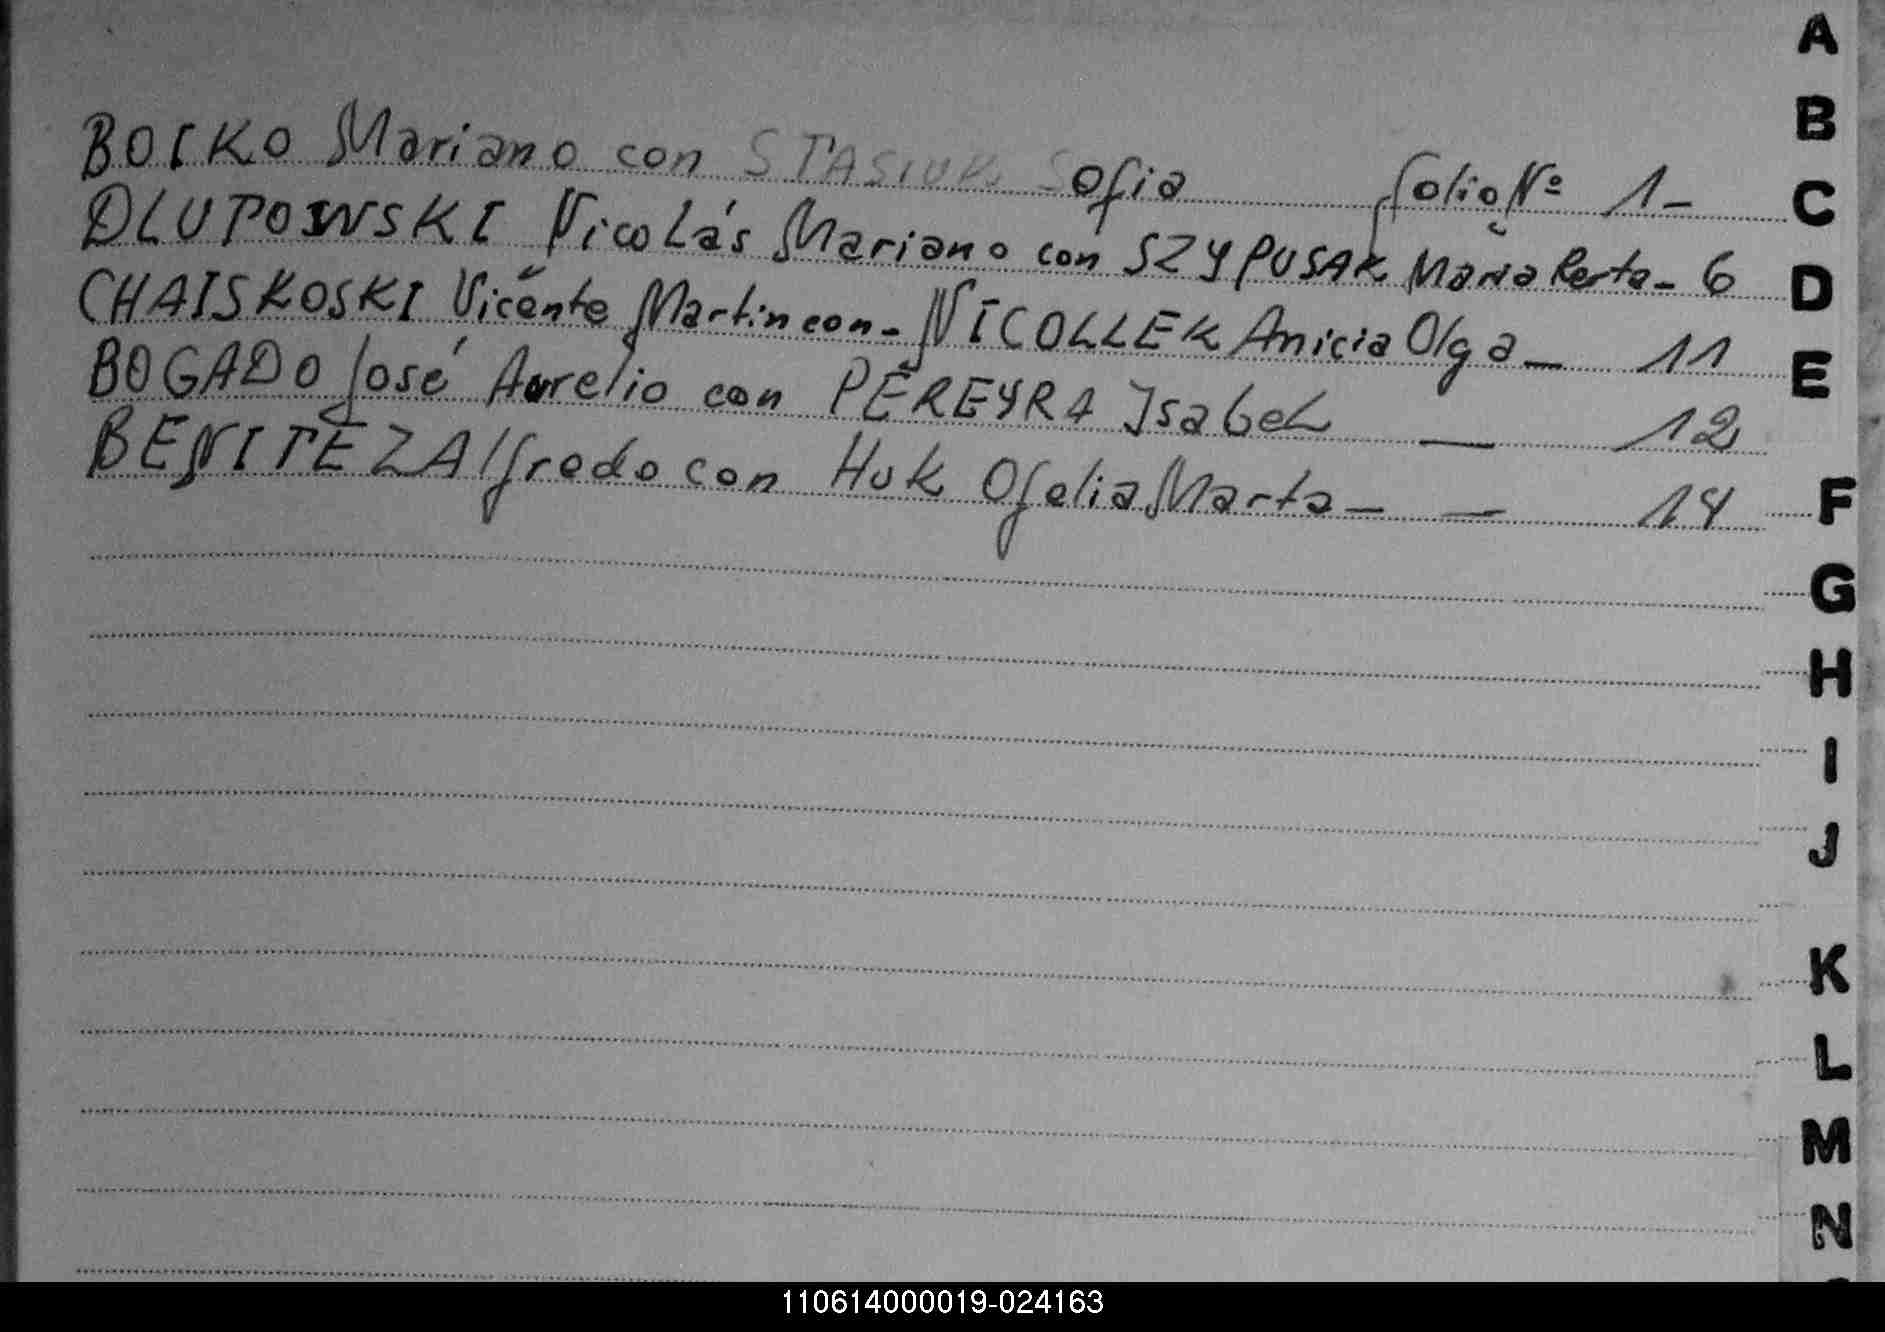 BOIKO Mariano con STASIUK Sofia folio Nº 1-
DLUPOWSKI Nicolás Mariano con SZYPUSAK Maria Berta- 6
CHAISKOSKI Vicente Martin con- NICOLLEK Anicia Olga - 11
BOGADO José Aurelio con PEREYRA Isabel — 12
BENITEZ Alfredo con Huk Ofelia Marta - — 14
A
B
C
D
E
F
G
H
I
J
K
L
M
N
110614000019-024163